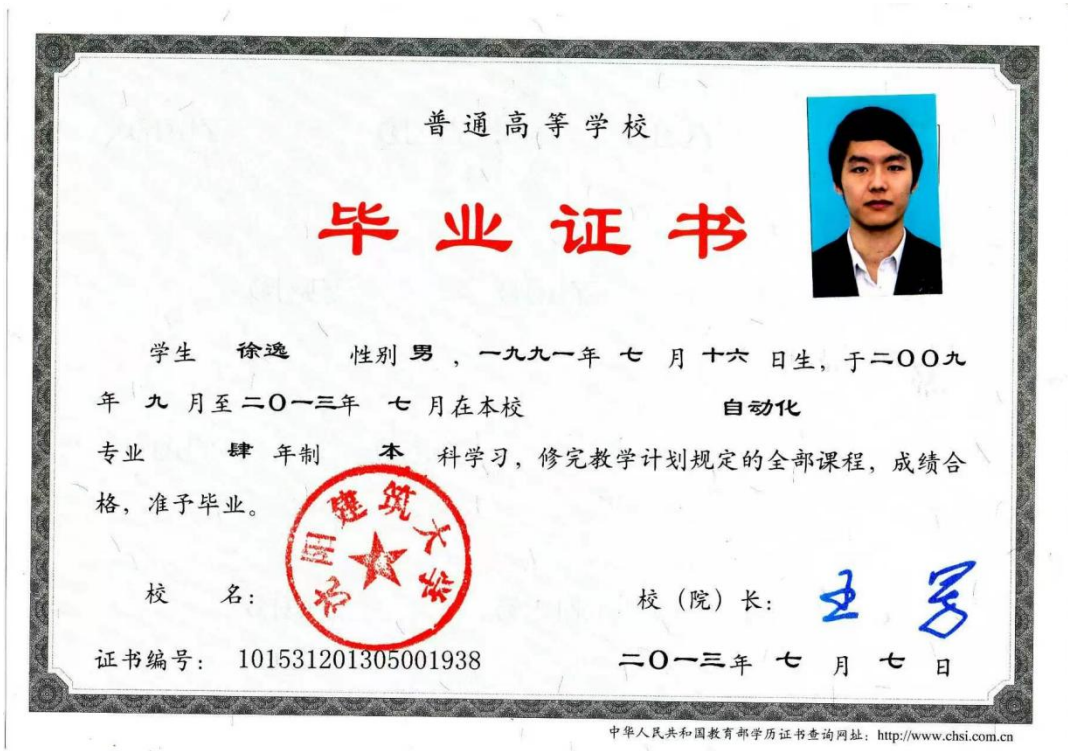 普通高等学校
毕业证书
学生 徐逸 性别 男 ，一九九一年 七 月 十六 日生，于二〇〇九
年 九 月至 二〇一三年 七 月在本校 自动化
专业 肆 年制 本 科学习，修完教学计划规定的全部课程，成绩合
格，准予毕业。
沈阳建筑大学
校 名：
校（院）长：
证书编号： 101531201305001938
二〇一三年 七 月 七 日
中华人民共和国教育部学历证书查询网址：http://www.chsi.com.cn